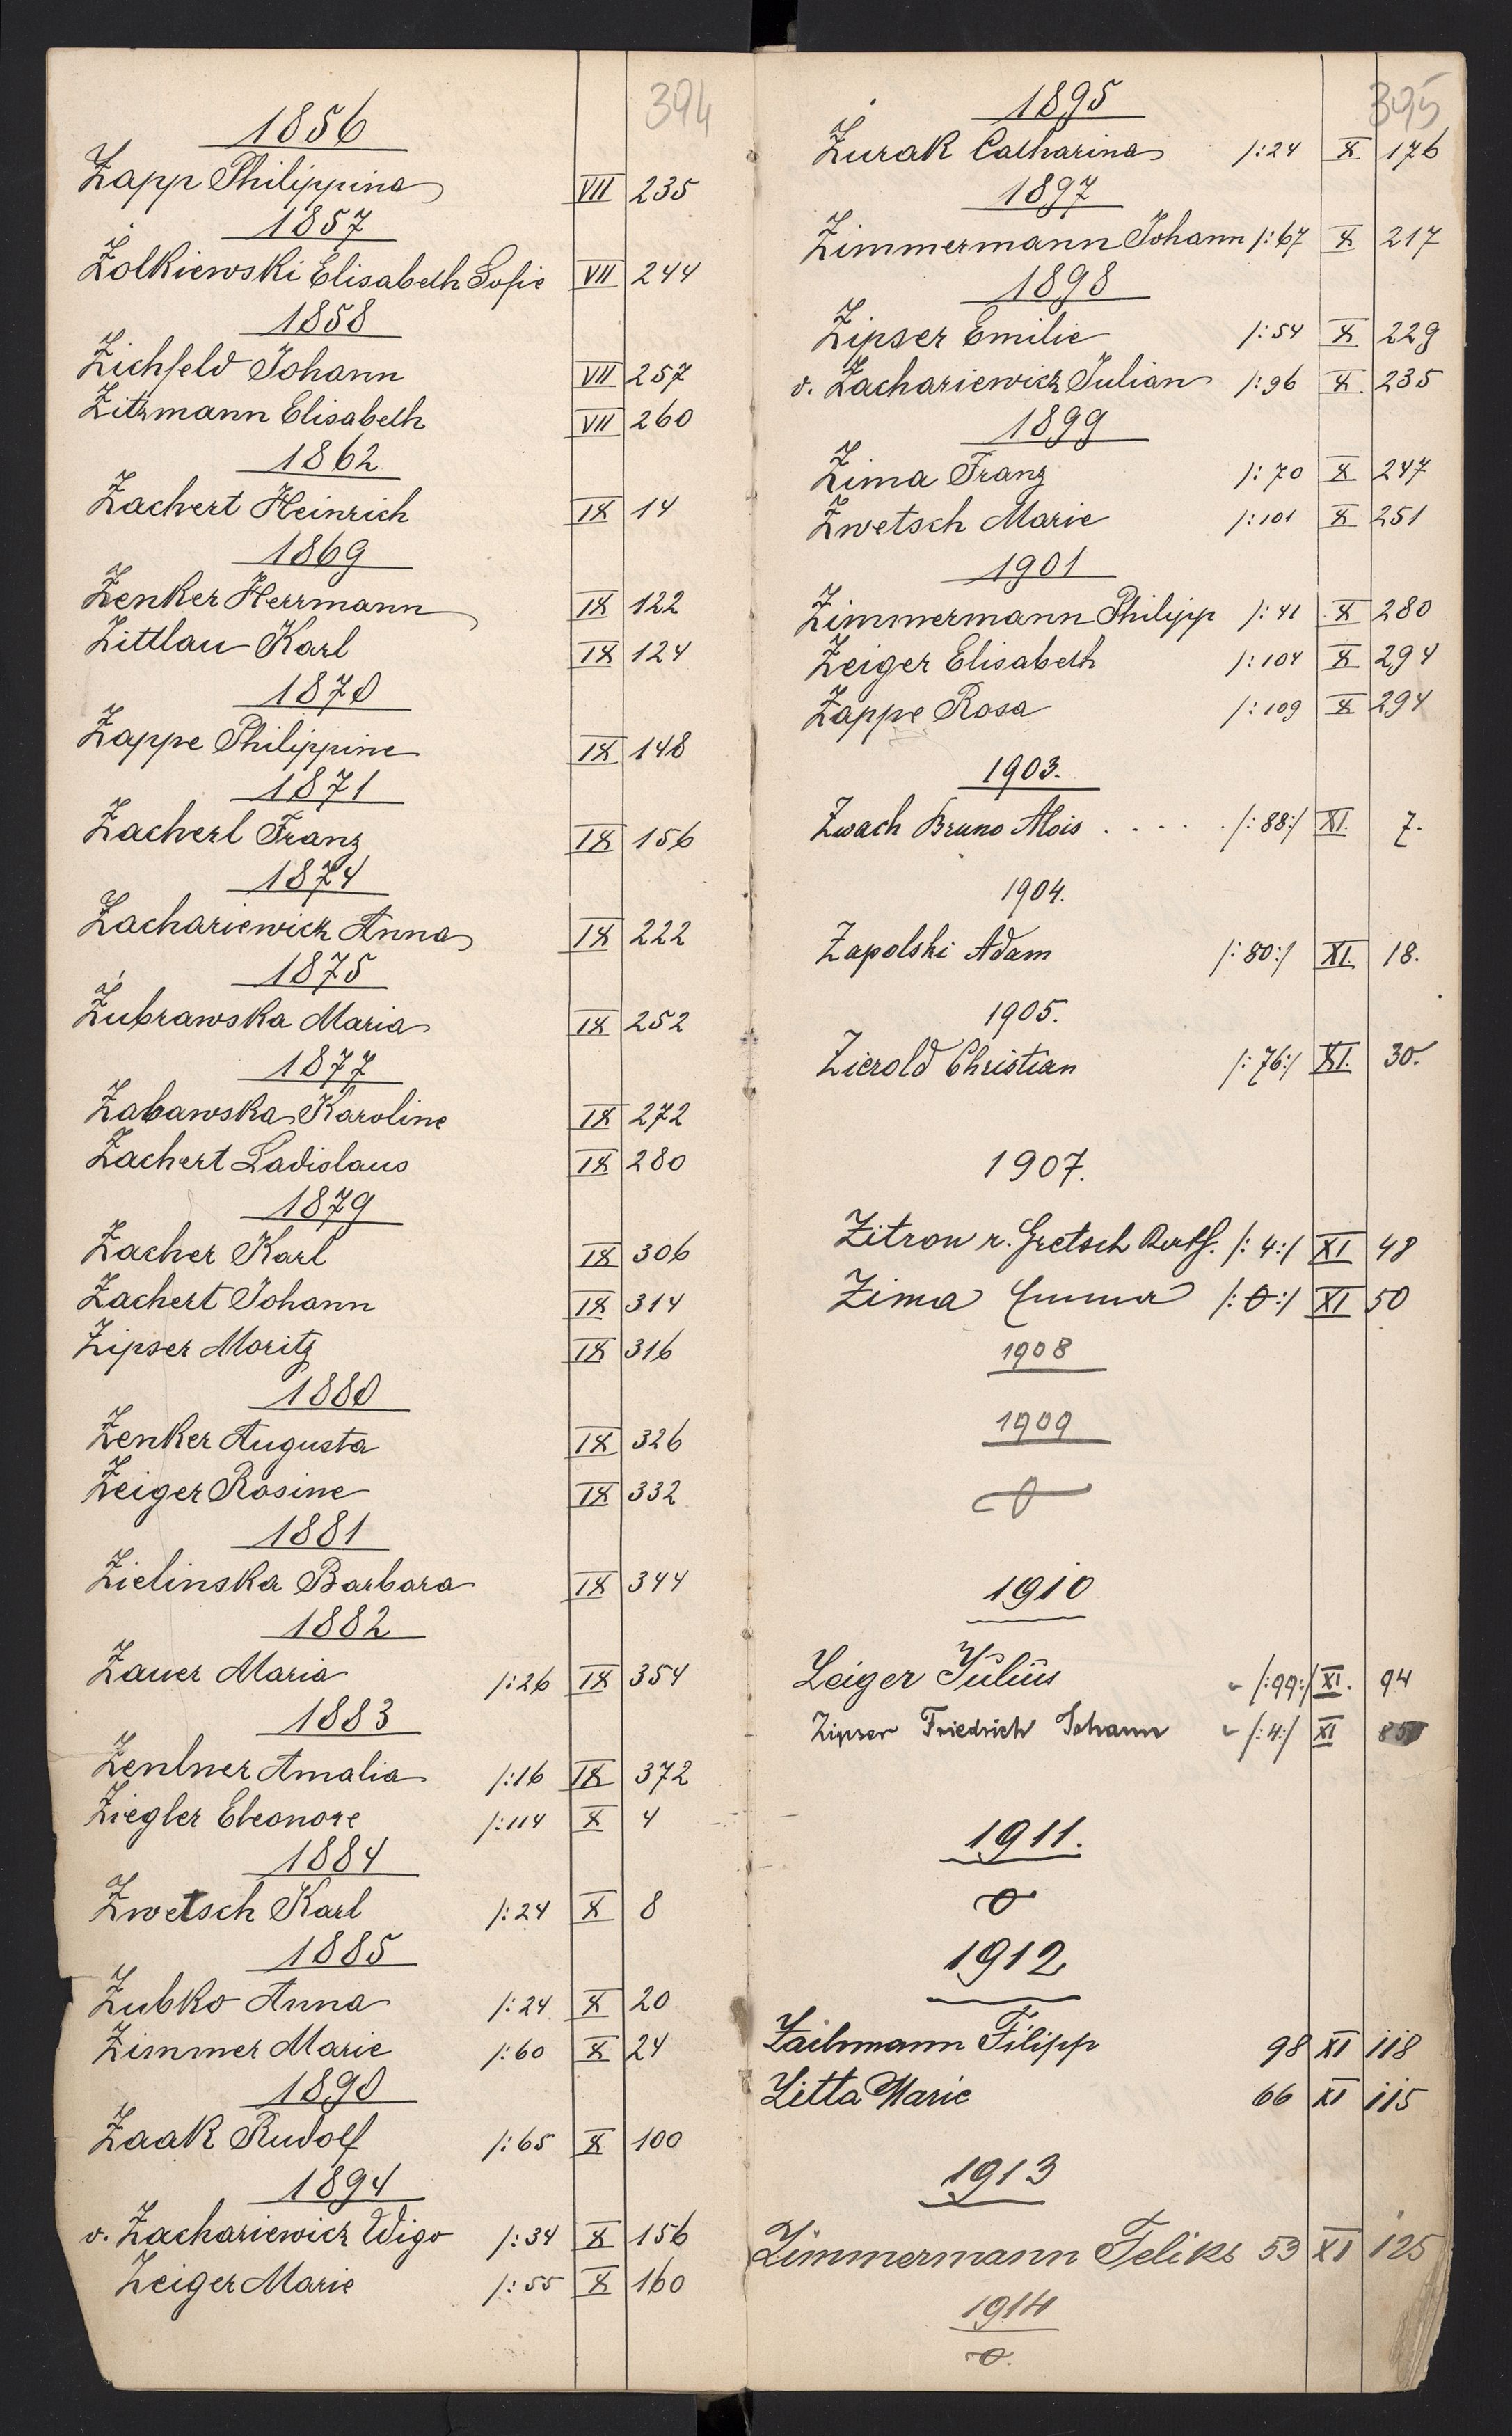 394
1856
Zapp Philippina VII 235
1857
Żolkiewski Elisabeth Sofie VII 244
1858
Zichfeld Johann VII 257
Zitzmann Elisabeth VII 260
1862
Zachert Heinrich IX 14
1869
Zenker Herrmann IX 122
Zittlau Karl IX 124
1870
Zappe Philippine IX 148
1871
Zacherl Franz IX 156
1874
Zachariewicz Anna IX 222
1875
Zubrawska Maria IX 252
1877
Zabawska Karoline IX 272
Zachert Ladislaus IX 280
1879
Zacher Karl IX 306
Zachert Johann IX 314
Zipser Moritz IX 316
1880
Zenker Augusta IX 326
Zeiger Rosine IX 332
1881
Zielinska Barbara IX 344
1882
Zauer Maria /:26 IX 354
1883
Zentner Amalia /:16 IX 372
Ziegler Eleonore /:114 X 4
1884
Zwetsch Karl /:24 X 8
1885
Zubko Anna /:24 X 20
Zimmer Marie /:60 X 24
1890
Zaak Rudolf /:65 X 100
1894
v. Zachariewicz Wigo /:34 X 156
Zeiger Marie /:55 X 160
395
1895
Żurak Catharina /:24 X 176
1897
Zimmermann Johann /:67 X 217
1898
Zipser Emilie /:54 X 229
v. Zachariewicz Julian /:96 X 235
1899
Zima Franz /:70 X 247
Zwetsch Marie /:101 X 251
1901
Zimmermann Philipp /:41 X 280
Zeiger Elisabeth /:104 X 294
Zappe Rosa /:109 X 294
1903.
Zwach Bruno Alois . . . . . /:88:/ XI. 7.
1904.
Zapolski Adam /:80:/ XI. 18.
1905.
Zierold Christian /:76:/ XI. 30.
1907.
Zitron r. Gretsch /:4:/ XI 48
Zima Emma /:0:/ XI 50
1908
1909
0
1910
Zeiger Julius /:99:/ XI. 94
Zipser Friedrich Johann /:4:/ XI
1911.
0
1912
Filipp 98 XI 118
Zitta Marie 66 XI 115
1913
Zimmermann Feliks 53 XI 125
1914
0.